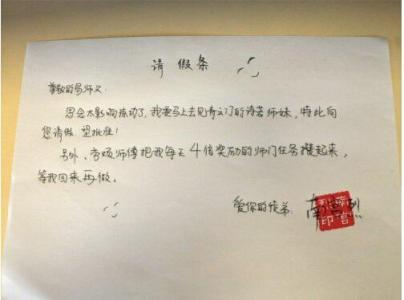 请假条
尊敬的易师父：
因会太影响振动了，我要马上去见诗之门的诗若师妹，特此向
您请假 望批准！
另外，要烦师傅把我每天4倍奖励的师门任务攒起来，
等我回来再做。
爱你的徒弟：南宫烈
南宫烈印